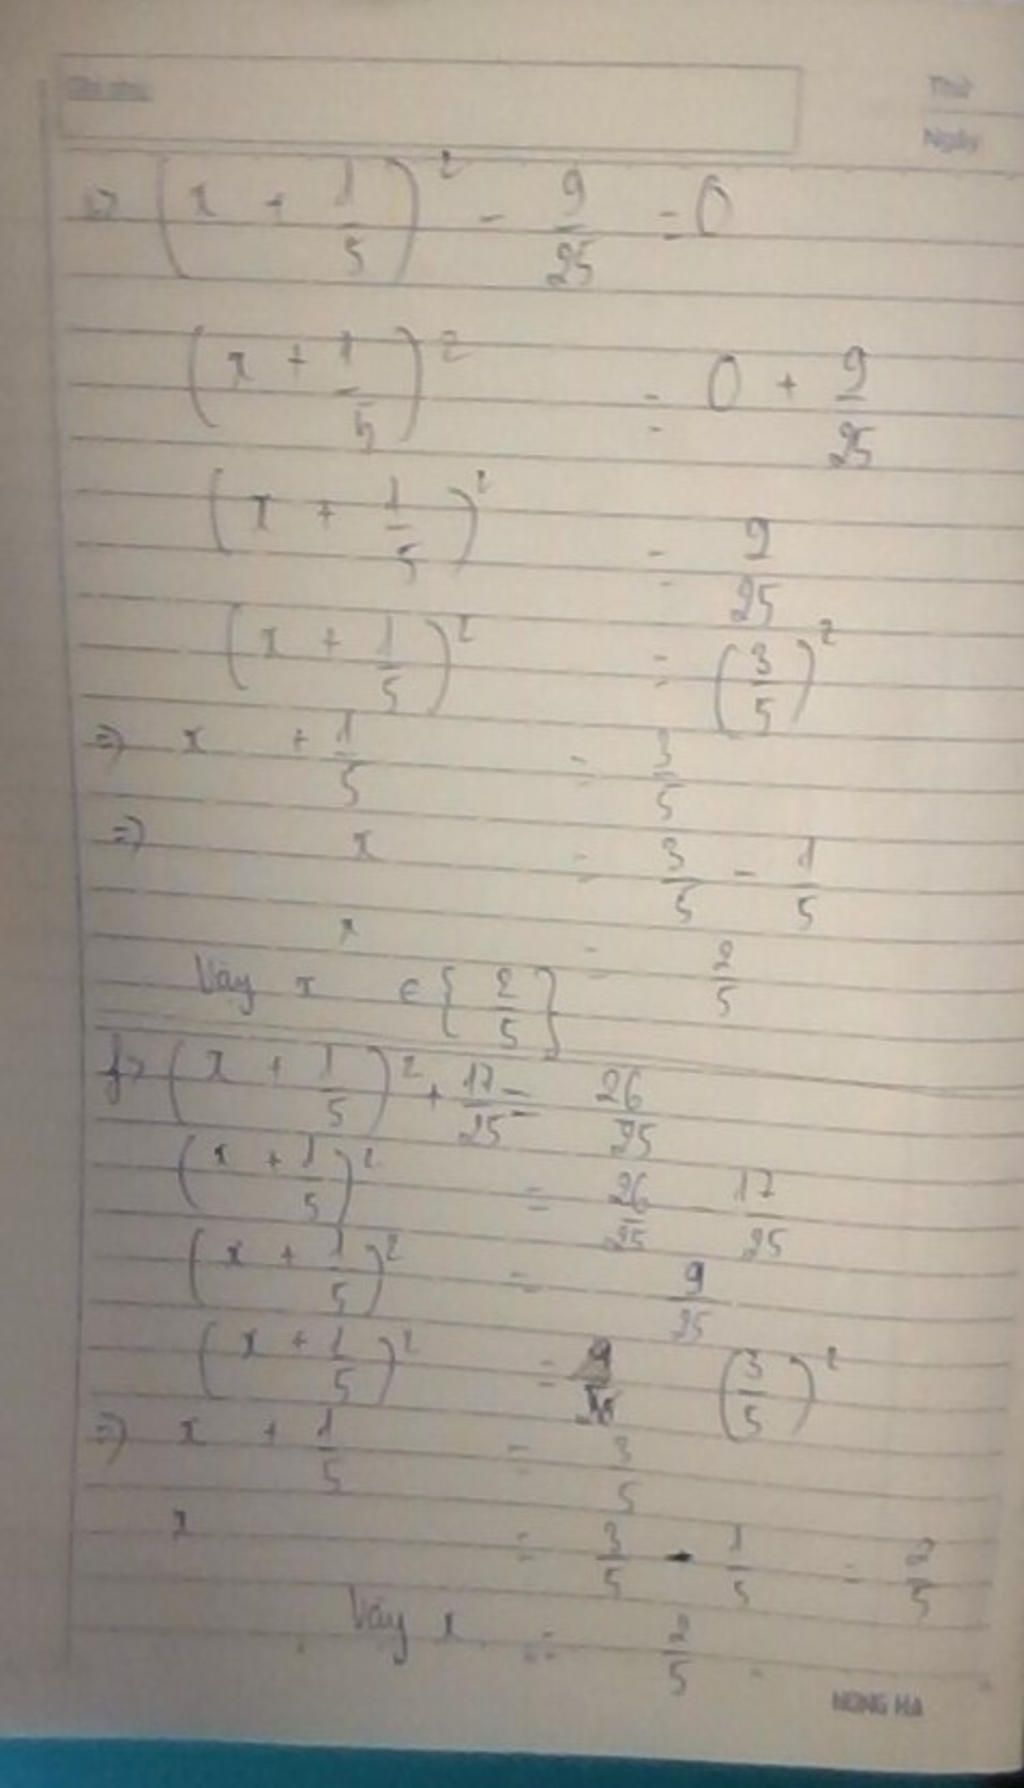 Thứ
Ngày
(x + 1/5)² - 9/25 = 0
(x + 1/5)² = 0 + 9/25
(x + 1/5)² = 9/25
(x + 1/5)² = (3/5)²
=> x + 1/5 = 3/5
=> x = 3/5 - 1/5
x = 2/5
Vậy x ∈ {2/5}
f> (x + 1/5)² + 17/25 = 26/25
(x + 1/5)² = 26/25 17/25
(x + 1/5)² = 9/25
(x + 1/5)² = (3/5)²
=> x + 1/5 = 3/5
x = 3/5 - 1/5 = 2/5
Vậy x = 2/5.
HONG HA